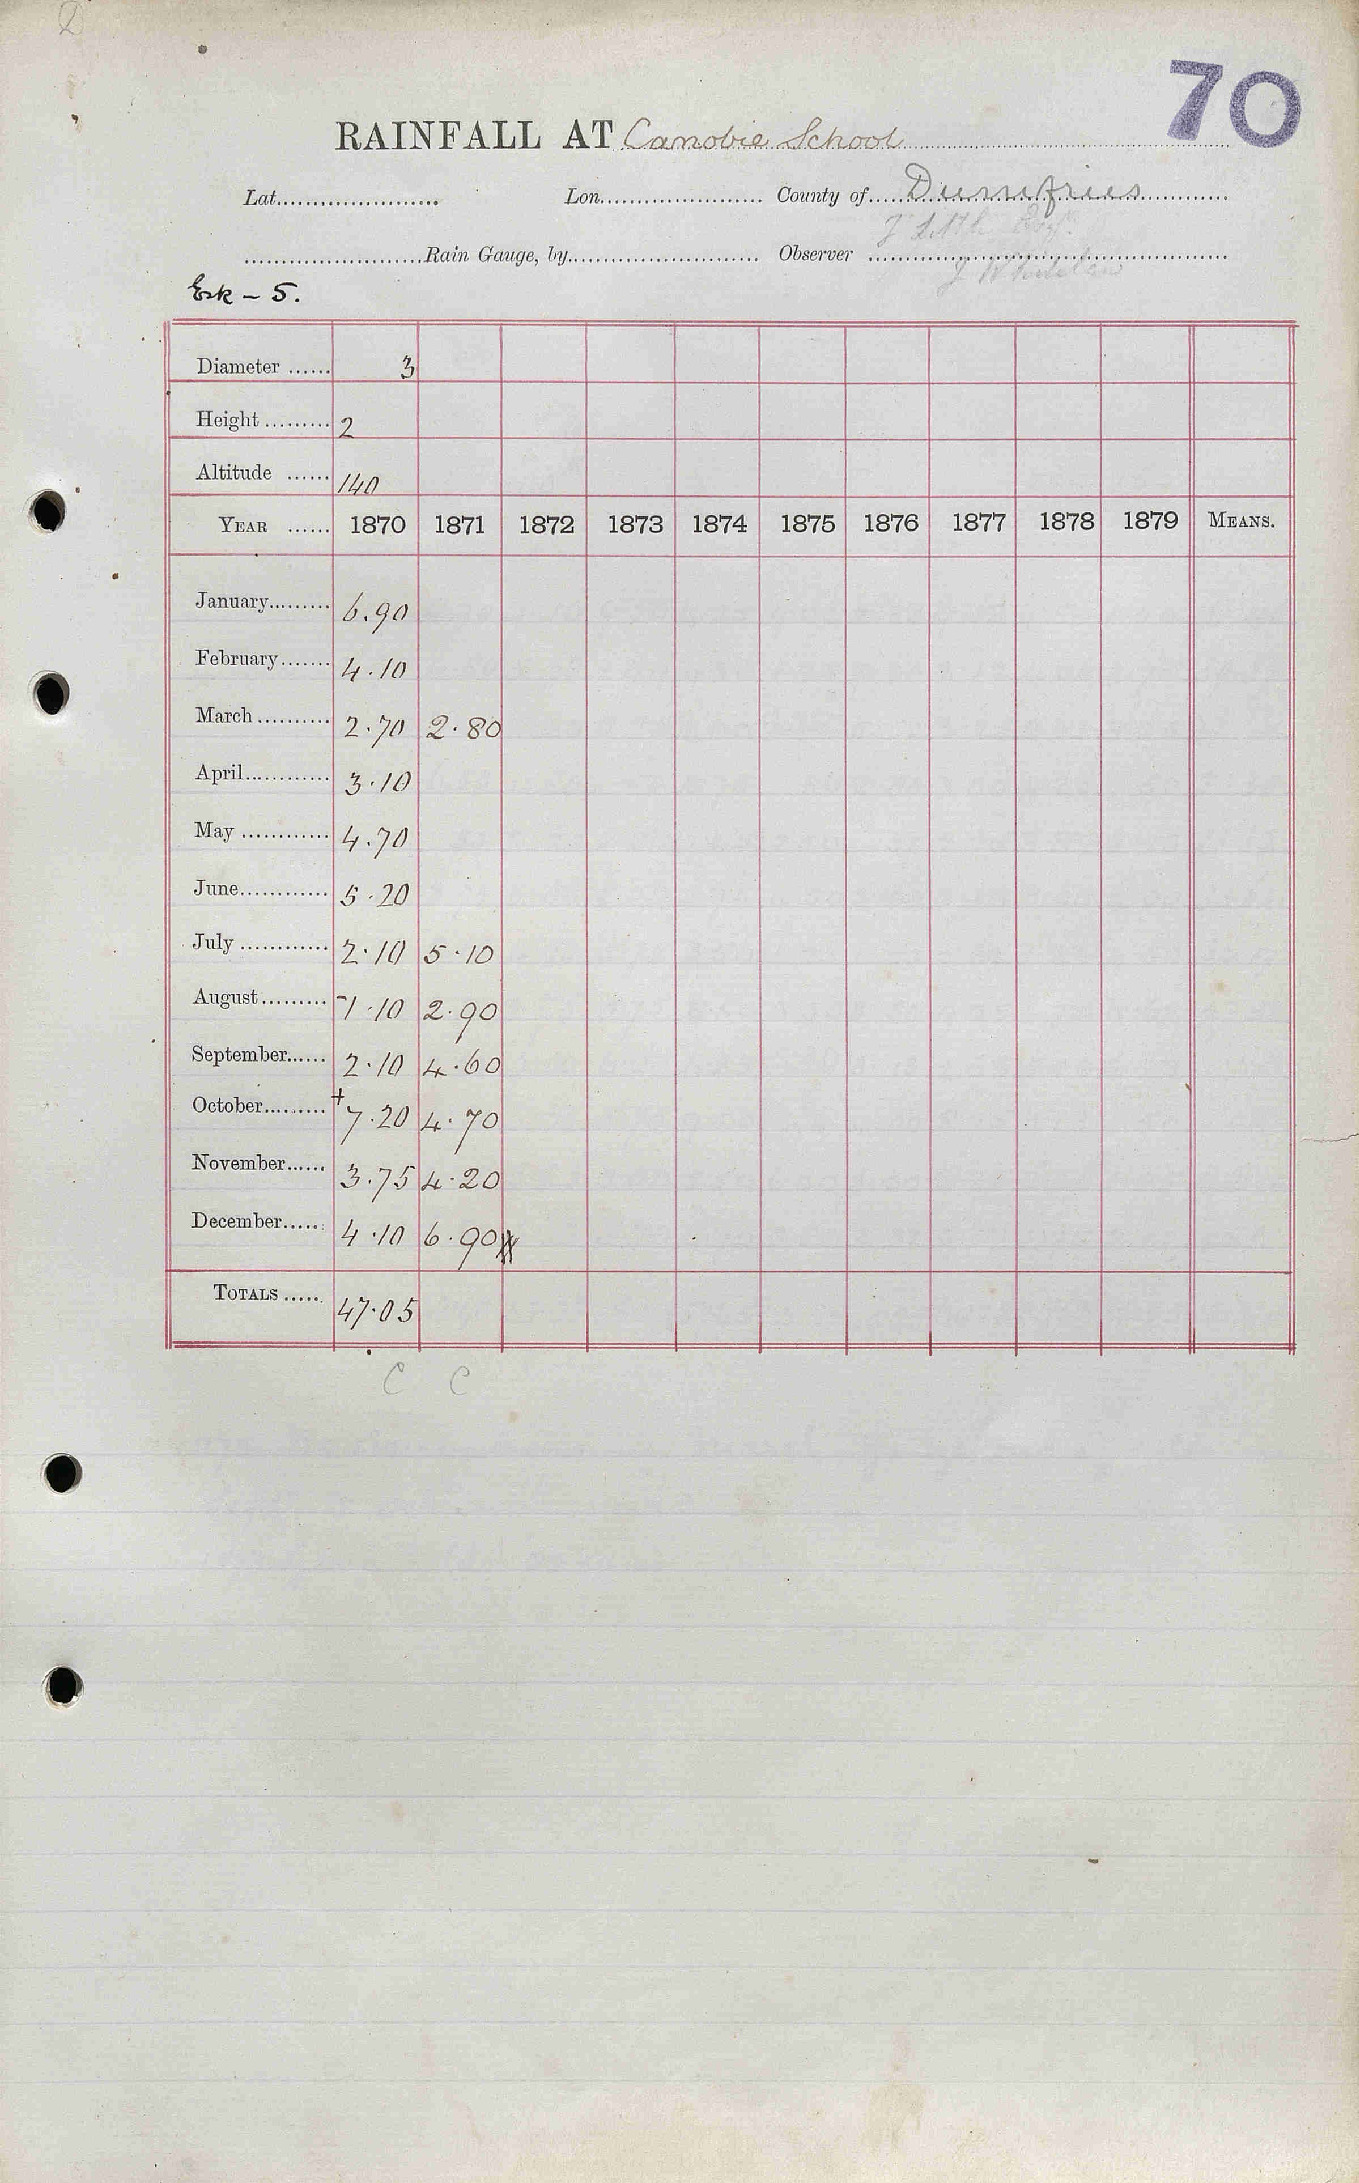 2
70
RAINFALL AT Canobie School
Lat. Lon. County of Dumfries
Rain Gauge, by Observer
J Whitelaw
Esk - 5.
Diameter ...... 3
Height ......... 2
Altitude ...... 140
YEAR ...... 1870 1871 1872 1873 1874 1875 1876 1877 1878 1879 MEANS.
January......... 6.90
February....... 4.10
March .......... 2.70 2.80
April............ 3.10
May ............ 4.70
June............ 5.20
July ............ 2.10 5.10
August ......... 1.10 2.90
September...... 2.10 4.60
October......... +7.20 4.70
November...... 3.75 4.20
December..... 4.10 6.90
TOTALS ..... 47.05
C C